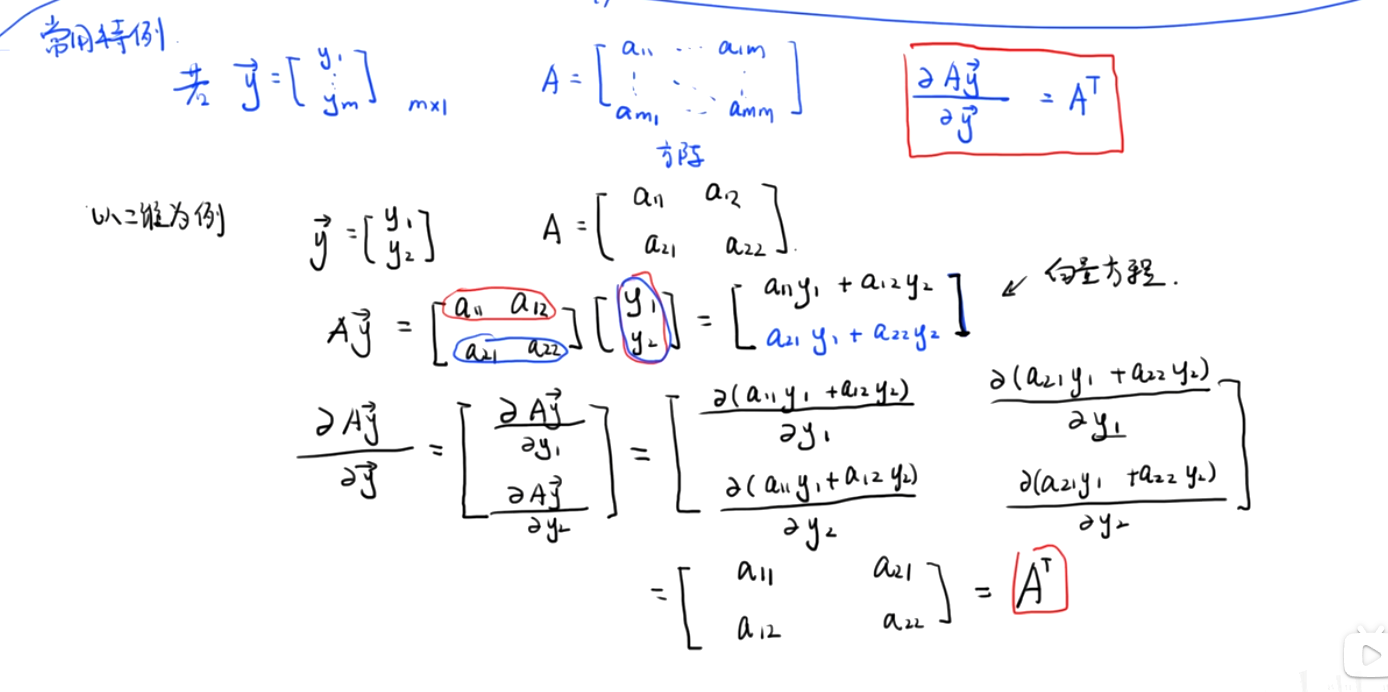 常用特例
若 y⃗ = [ y₁ ⋮ yₘ ] m×1    A = [ a₁₁ ⋯ a₁ₘ ; ⋮ ⋱ ⋮ ; aₘ₁ ⋯ aₘₘ ]    ∂Ay⃗ / ∂y⃗ = Aᵀ
方阵
以二维为例    y⃗ = [ y₁ ; y₂ ]    A = [ a₁₁ a₁₂ ; a₂₁ a₂₂ ].
Ay⃗ = [ a₁₁ a₁₂ ; a₂₁ a₂₂ ] [ y₁ ; y₂ ] = [ a₁₁y₁ + a₁₂y₂ ; a₂₁y₁ + a₂₂y₂ ] ↙ 向量方程.
∂Ay⃗ / ∂y⃗ = [ ∂Ay⃗/∂y₁ ; ∂Ay⃗/∂y₂ ] = [ ∂(a₁₁y₁ + a₁₂y₂)/∂y₁  ∂(a₂₁y₁ + a₂₂y₂)/∂y₁ ; ∂(a₁₁y₁ + a₁₂y₂)/∂y₂  ∂(a₂₁y₁ + a₂₂y₂)/∂y₂ ]
= [ a₁₁ a₂₁ ; a₁₂ a₂₂ ] = Aᵀ